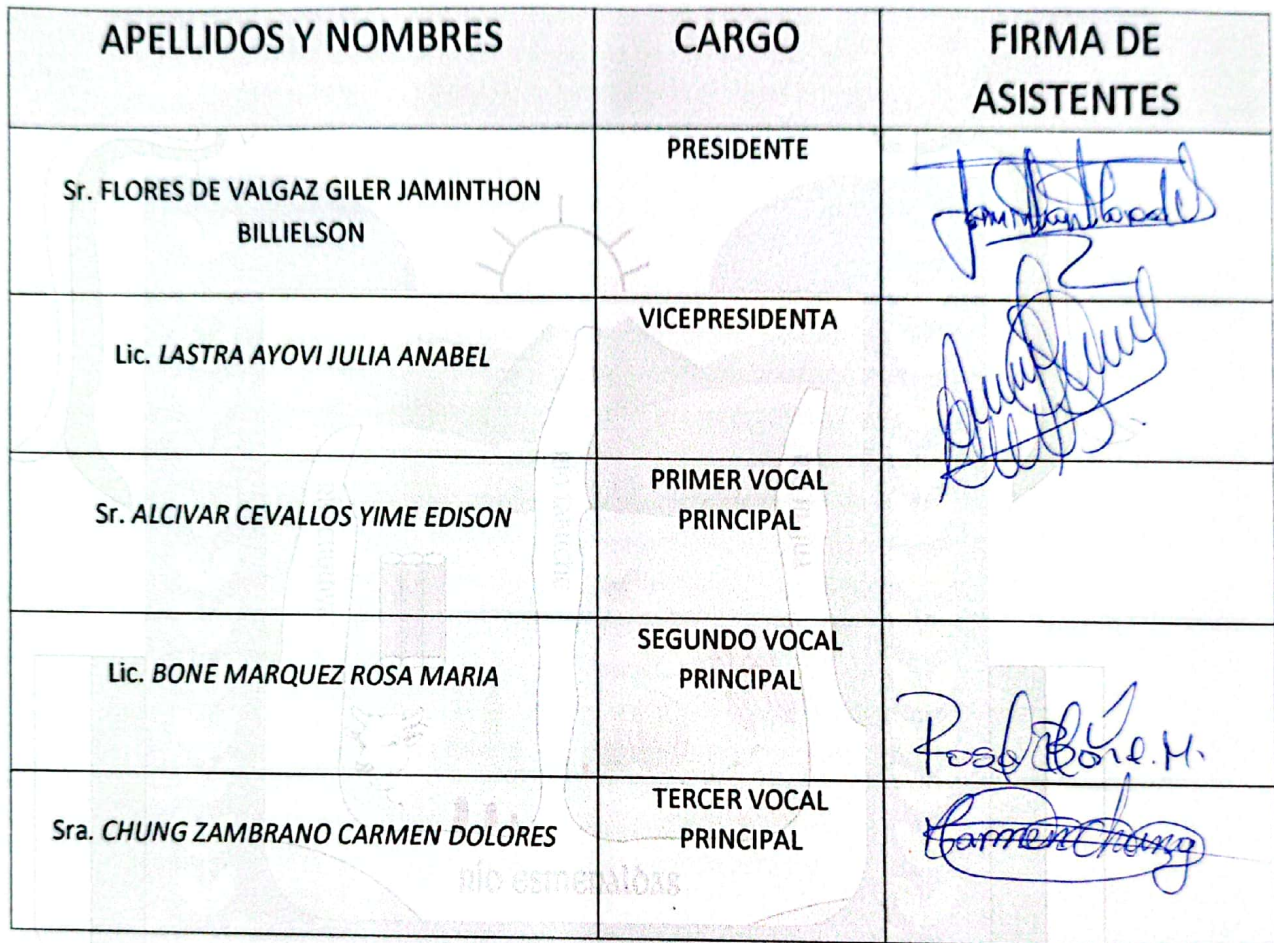 APELLIDOS Y NOMBRES
CARGO
FIRMA DE
ASISTENTES
Sr. FLORES DE VALGAZ GILER JAMINTHON
BILLIELSON
PRESIDENTE
Lic. LASTRA AYOVI JULIA ANABEL
VICEPRESIDENTA
Sr. ALCIVAR CEVALLOS YIME EDISON
PRIMER VOCAL
PRINCIPAL
Lic. BONE MARQUEZ ROSA MARIA
SEGUNDO VOCAL
PRINCIPAL
Rosa Bone. M.
Sra. CHUNG ZAMBRANO CARMEN DOLORES
TERCER VOCAL
PRINCIPAL
Carmen Chung
RÍO ESMERALDAS